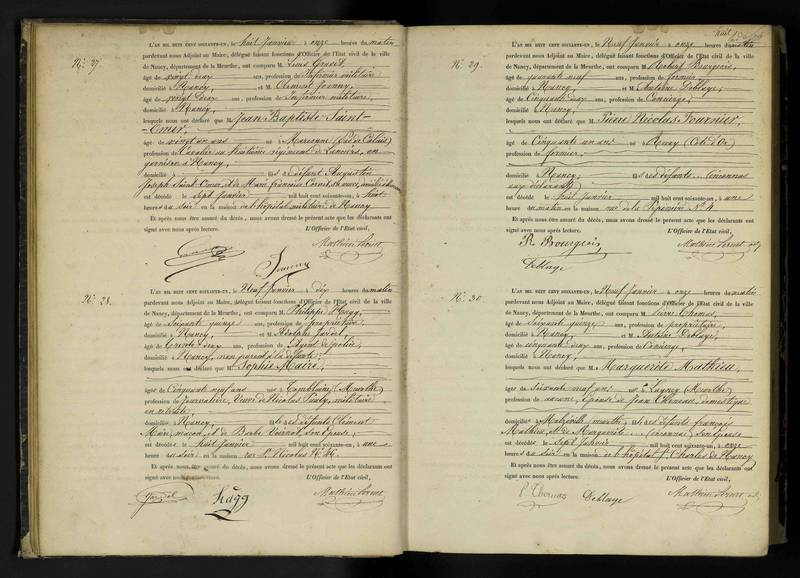 N.° 27.
L'AN MIL HUIT CENT SOIXANTE-UN, le huit Janvier à onze heures du matin
pardevant nous Adjoint au Maire, délégué faisant fonctions d'Officier de l'Etat civil de la ville
de Nancy, département de la Meurthe, ont comparu M. Louis
âgé de vingt deux ans, profession de Infirmier militaire
domicilié à Nancy, et M. Clément Jeanny,
âgé de vingt deux ans, profession de Infirmier militaire,
domicilié à Nancy,
lesquels nous ont déclaré que M. Jean Baptiste Saint-
Omer,
âgé de vingt un ans né à Marconne (Pas de Calais)
profession de Cavalier au huitième régiment de Lanciers, en
garnison à Nancy,
domicilié à et de défunt Augustin
Joseph Saint Omer et de Marie françoise Cornet, sa veuve,
est décédé le sept Janvier mil huit cent soixante-un, à huit
heures du soir en la maison de l'hôpital militaire de Nancy
Et après nous être assuré du décès, nous avons dressé le présent acte que les déclarants ont
signé avec nous après lecture. L'Officier de l'Etat civil,
Jeanny
N.° 28.
L'AN MIL HUIT CENT SOIXANTE-UN, le Neuf Janvier à dix heures du matin
pardevant nous Adjoint au Maire, délégué faisant fonctions d'Officier de l'Etat civil de la ville
de Nancy, département de la Meurthe, ont comparu M. Philippe Hagg,
âgé de Soixante quinze ans, profession de propriétaire,
domicilié à Nancy, et M. Adolphe
âgé de Trente deux ans, profession de Agent de police,
domicilié à Nancy, non parent à la défunte;
lesquels nous ont déclaré que M. Sophie Mairé,
âgée de Cinquante neuf ans née à Tomblaine (Meurthe)
profession de Journalière, Veuve de Nicolas militaire
en retraite,
domicilié à Nancy, et des défunts Clément
Mairé, maçon, et de Barbe son épouse,
est décédé le huit Janvier mil huit cent soixante-un, à une
heure du soir en la maison rue St Nicolas N.°
Et après nous être assuré du décès, nous avons dressé le présent acte que les déclarants ont
signé avec nous après lecture. L'Officier de l'Etat civil,
Hagg
N.° 29.
L'AN MIL HUIT CENT SOIXANTE-UN, le Neuf Janvier à onze heures du matin
pardevant nous Adjoint au Maire, délégué faisant fonctions d'Officier de l'Etat civil de la ville
de Nancy, département de la Meurthe, ont comparu M. Robert Bourgeois,
âgé de quarante neuf ans, profession de fermier,
domicilié à Nancy, et M. Antoine Deblaye,
âgé de Cinquante deux ans, profession de Concierge,
domicilié à Nancy,
lesquels nous ont déclaré que M. Pierre Nicolas Fournier,
âgé de Cinquante un ans né à (Côte d'Or)
profession de fermier,
domicilié à Nancy, et des défunts inconnus
aux déclarants,
est décédé le huit Janvier mil huit cent soixante-un, à une
heure du matin en la maison rue de la N.° 4
Et après nous être assuré du décès, nous avons dressé le présent acte que les déclarants ont
signé avec nous après lecture. L'Officier de l'Etat civil,
R. Bourgeois
Deblaye
N.° 30.
L'AN MIL HUIT CENT SOIXANTE-UN, le Neuf Janvier à onze heures du matin
pardevant nous Adjoint au Maire, délégué faisant fonctions d'Officier de l'Etat civil de la ville
de Nancy, département de la Meurthe, ont comparu M. Pierre Thomas,
âgé de Soixante quinze ans, profession de propriétaire,
domicilié à Nancy, et M. Antoine Deblaye,
âgé de cinquante deux ans, profession de Concierge,
domicilié à Nancy,
lesquels nous ont déclaré que M. Marguerite Mathieu,
âgée de Soixante neuf ans née à Laxey (Meurthe)
profession de épouse de Jean domestique
domicilié à Malzéville, meurthe, et des défunts françois
Mathieu, et de Marguerite (inconnue), son épouse
est décédé le Sept Janvier mil huit cent soixante-un, à onze
heures du soir en la maison de l'hôpital St Charles de Nancy
Et après nous être assuré du décès, nous avons dressé le présent acte que les déclarants ont
signé avec nous après lecture. L'Officier de l'Etat civil,
P. Thomas Deblaye